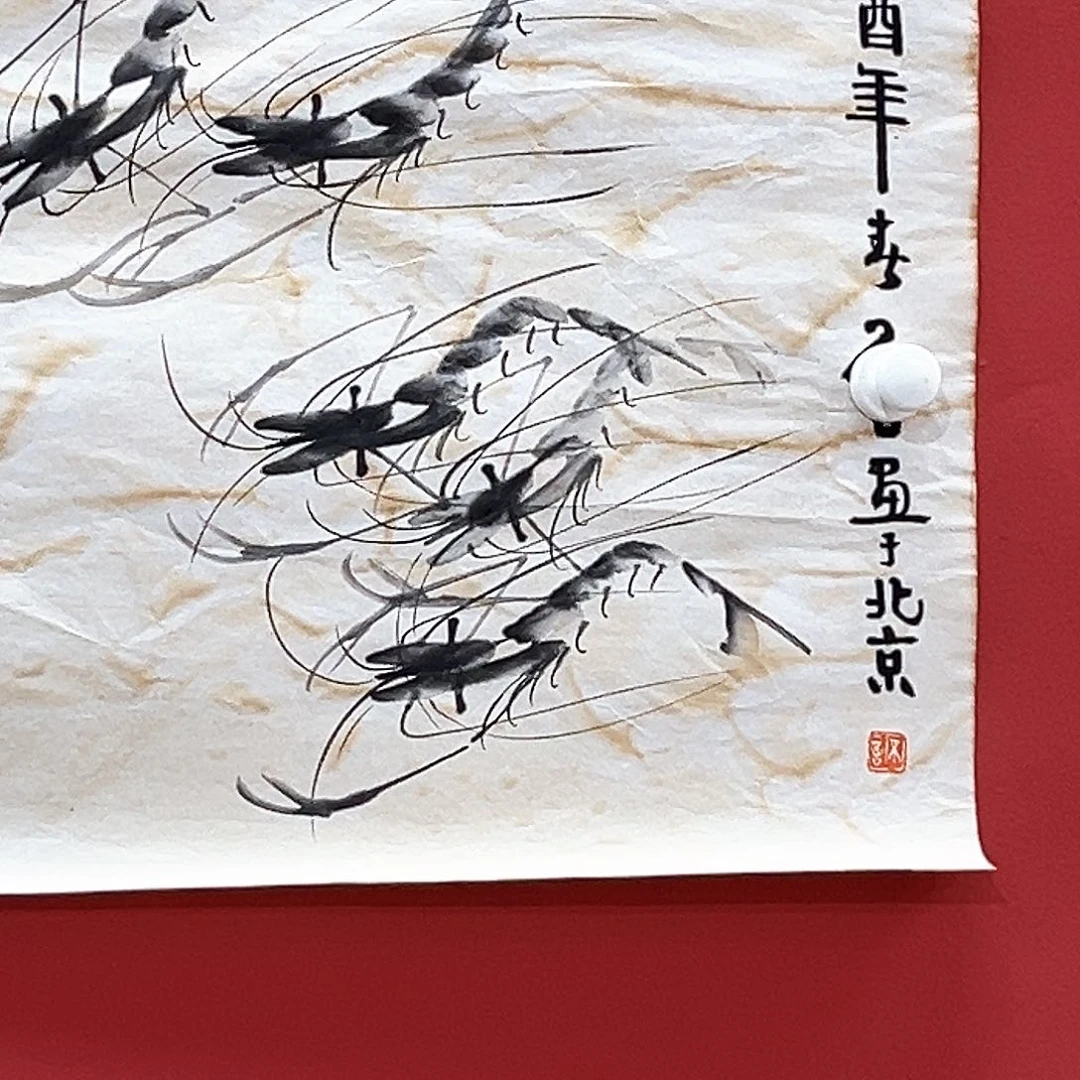 酉年春画于北京